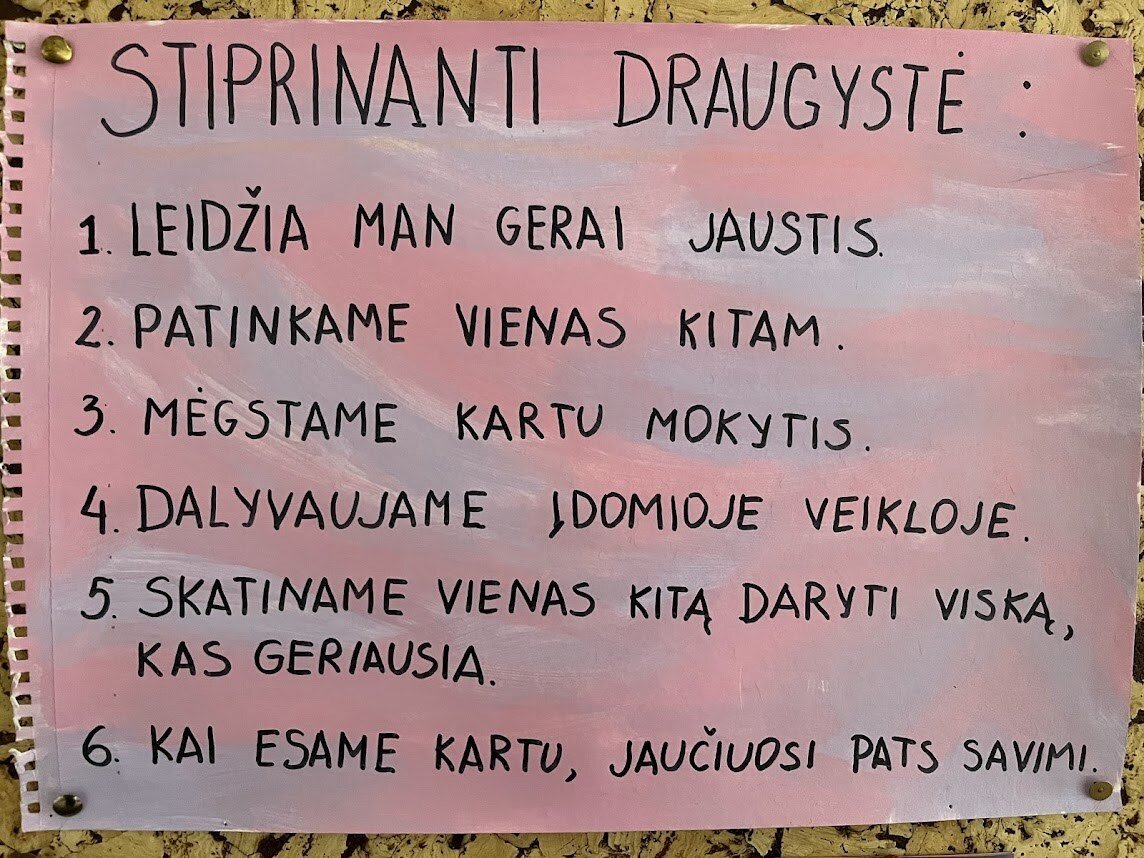 STIPRINANTI DRAUGYSTĖ :
1. LEIDŽIA MAN GERAI JAUSTIS.
2. PATINKAME VIENAS KITAM.
3. MĖGSTAME KARTU MOKYTIS.
4. DALYVAUJAME ĮDOMIOJE VEIKLOJE.
5. SKATINAME VIENAS KITĄ DARYTI VISKĄ,
KAS GERIAUSIA.
6. KAI ESAME KARTU, JAUČIUOSI PATS SAVIMI.